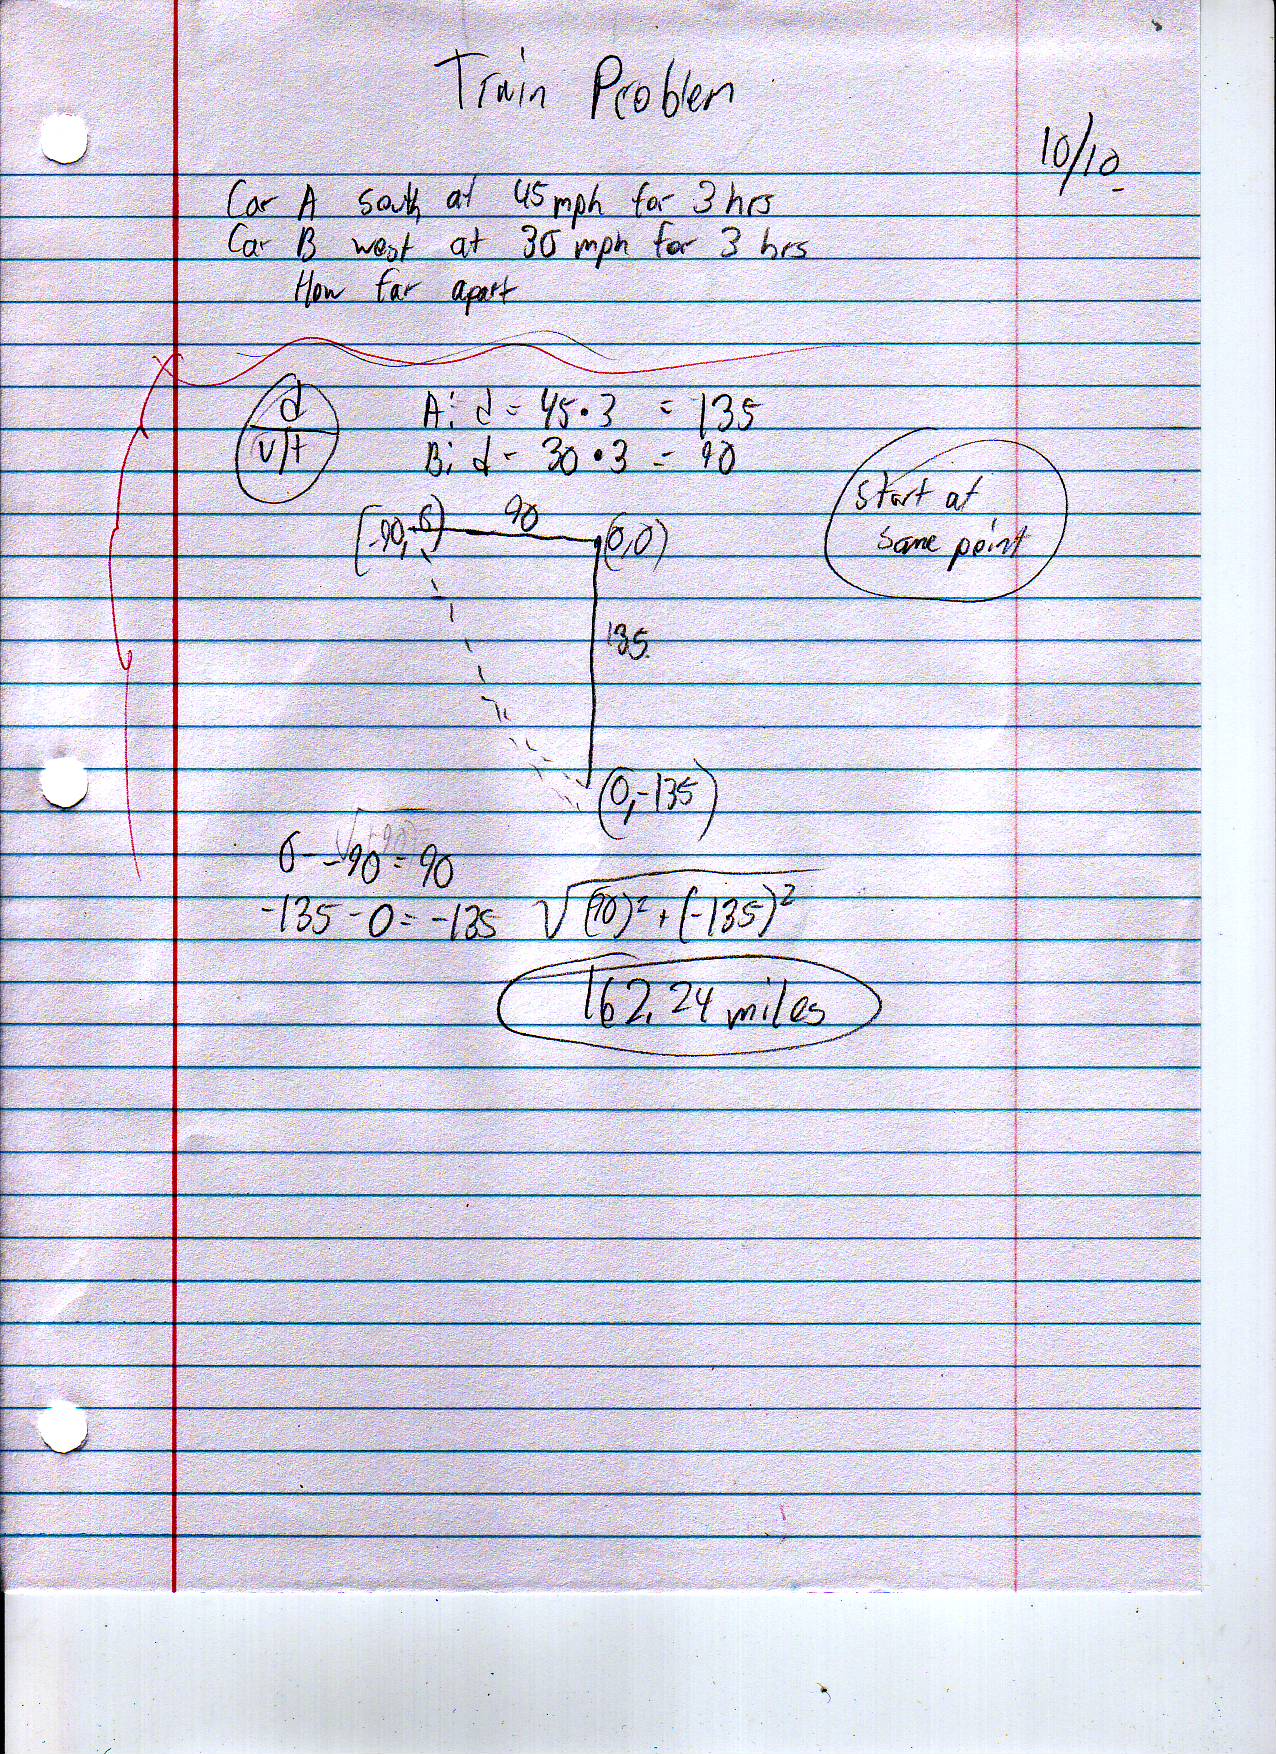 Train Problem
10/10
Car A south at 45 mph for 3 hrs
Car B west at 30 mph for 3 hrs
How far apart
d
v/t
A: d = 45•3 = 135
B: d = 30•3 = 90
Start at
same point
(-90, 0)
90
(0,0)
135
(0,-135)
0 - -90 = 90
-135 - 0 = -135 √(90)² + (-135)²
162.24 miles